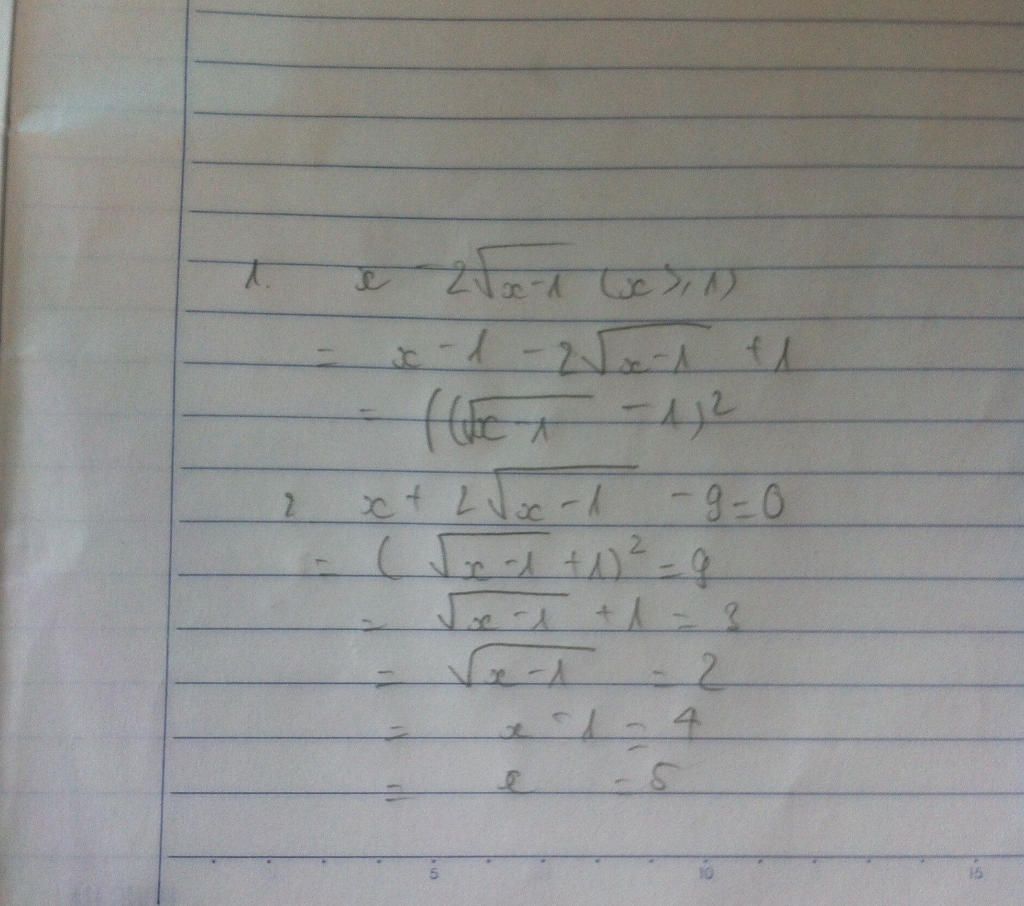 1. x - 2√(x-1) (x ≥ 1)
= x - 1 - 2√(x-1) + 1
= ((√(x-1) - 1)²
2 x + 2√(x-1) - 9 = 0
= (√(x-1) + 1)² = 9
= √(x-1) + 1 = 3
= √(x-1) = 2
= x - 1 = 4
= x = 5
5 10 15